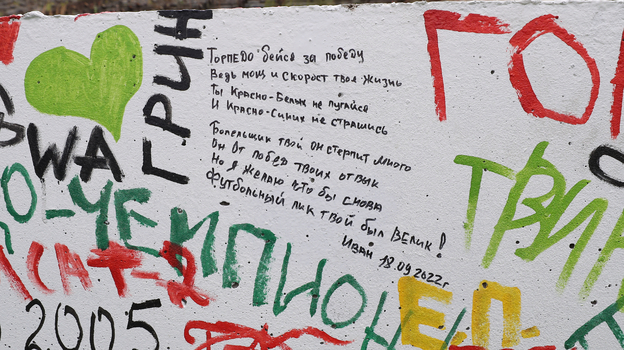 ТОРПЕДО бейся за победу
Ведь мощ и Скорост твое Жизнь
Ты Красно-Белых не пугайся
И Красно-Синих не страшись
Болельщик твой он стерпит много
Он От побед твоих отвык
Но я желаю что бы снова
Футбольный лик твой был Велик!
Иван 18.09.2022г
ГРИН
WA
О-ЧЕМПИОН
САТ-2
2005
ТВИ
Е.П.-